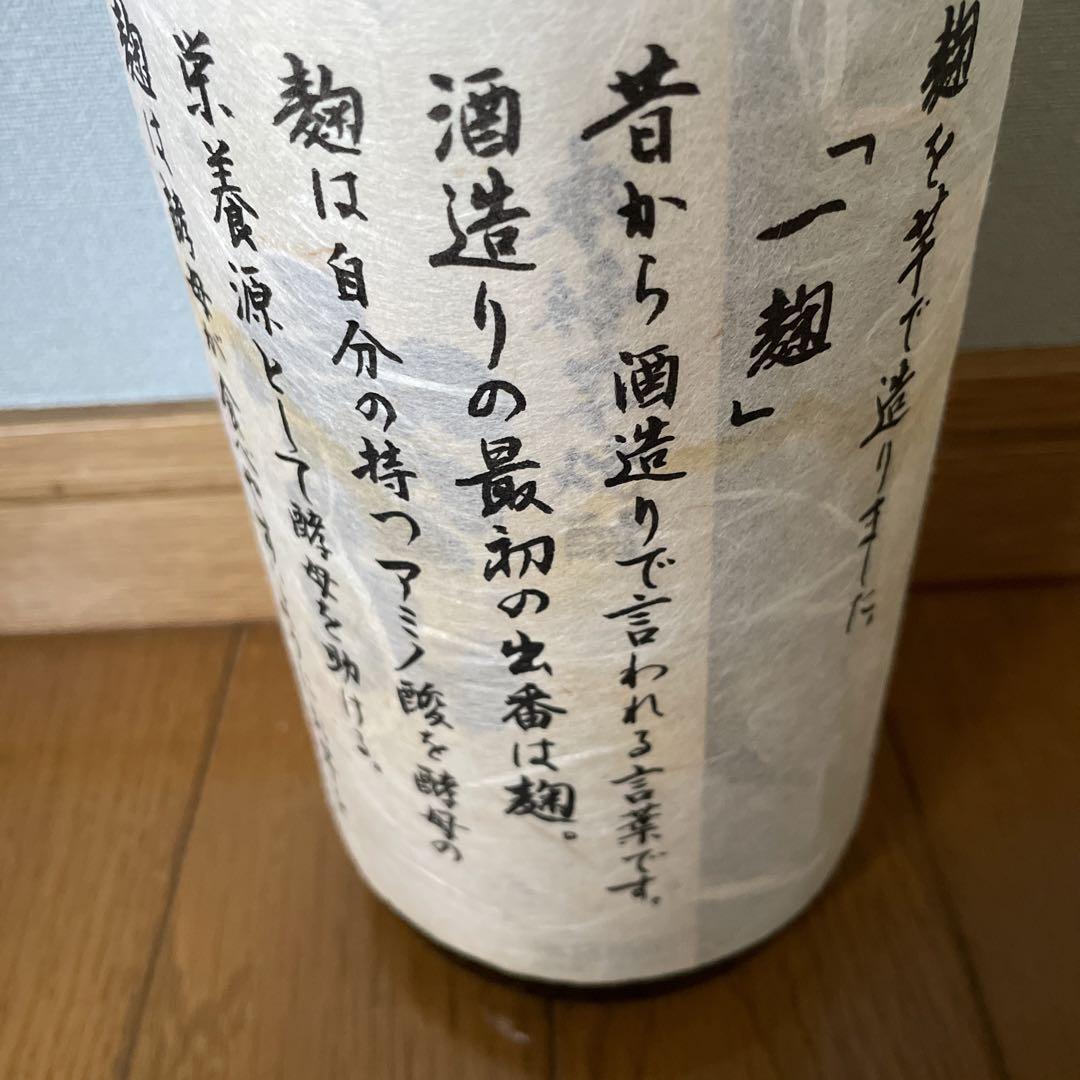 麹を芋で造りました
「一麹」
昔から酒造りで言われる言葉です。
酒造りの最初の出番は麹。
麹は自分の持つアミノ酸を酵母の
栄養源として酵母を助ける。
麹は酵母が